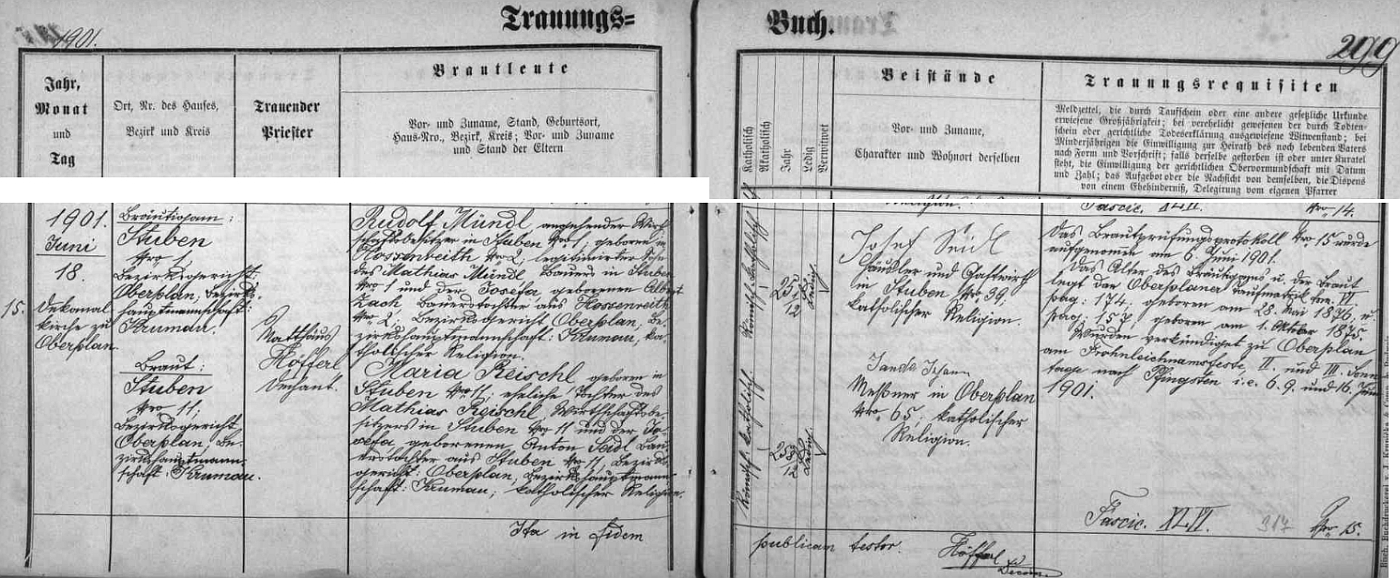 1901.
Trauungs=
Buch.
299
Jahr,
Monat
und
Tag
Ort, Nr. des Hauses,
Bezirk und Kreis
Trauender
Priester
Brautleute
Vor- und Zuname, Stand, Geburtsort,
Haus-Nro., Bezirk, Kreis; Vor- und Zuname
und Stand der Eltern
Katholisch
Akatholisch
Jahr
Ledig
Verwitwet
Beistände
Vor- und Zuname,
Charakter und Wohnort derselben
Trauungsrequisiten
Meldzettel, die durch Taufschein oder eine andere gesetzliche Urkunde
erwiesene Großjährigkeit; bei verehelicht gewesenen der durch Todten-
schein oder gerichtliche Todeserklärung ausgewiesene Witwenstand; bei
Minderjährigen die Einwilligung zur Heirath des noch lebenden Vaters
nach Form und Vorschrift; falls derselbe gestorben ist oder unter Kuratel
steht, die Einwilligung der gerichtlichen Obervormundschaft mit Datum
und Zahl; das Aufgebot oder die Nachsicht von demselben, die Dispens
von einem Ehehinderniß, Delegirung vom eigenen Pfarrer
15.
1901.
Juni
18.
Dekanal
kirche zu
Oberplan.
Bräutigam:
Stuben
Nro 1,
Bezirksgericht:
Oberplan, Bezirks-
hauptmannschaft:
Krumau.
Braut:
Stuben
Nro 11,
Bezirksgericht
Oberplan, Be-
zirkshauptmann-
schaft: Krumau.
Matthäus
Höfferl
Dechant.
Rudolf Mündl angehender Wirt-
schaftsbesitzer in Stuben Nro 1, geboren in
Hossenreith Nro 2, legitimirter Sohn
des Mathias Mündl Bauers in Stuben
Nro 1 und der Josefa geborenen Albert
Zach Bauerstochter aus Hossenreith
Nro 2, Bezirksgericht Oberplan, Be-
zirkshauptmannschaft: Krumau, ka-
tholischer Religion.
Maria Reischl geboren in
Stuben Nro 11, eheliche Tochter des
Mathias Reischl Wirtschaftsbe-
sitzers in Stuben Nro 11 und der Jo-
sefa, geborenen Anton Seidl Bau-
erstochter aus Stuben Nro 11, Bezirks-
gericht: Oberplan, Bezirkshauptmann-
schaft: Krumau, katholischer Religion.
Ita in fidem
Römisch katholisch
25 1/12
Ledig
Römisch katholisch
25 8/12
Ledig
Religion.
Josef Seidl
Häusler und Gastwirth
in Stuben Nro 39,
katholischer Religion.
Janda Johann
Meßner in Oberplan
Nro 65, katholischer
Religion.
Fascic. XLVI. Nro 14.
Das Brautprüfungsprotokoll Nro 15 wurde
aufgenommen am 6 Juni 1901.
Das Alter des Bräutigams u. der Braut
legt dar Oberplaner Taufmatrik tom. VI
pag: 174, geboren am 28. Mai 1876, u.
pag: 157 geboren am 1. Oktober 1875.
Wurden verkündiget zu Oberplan
am Frohnleichnamsfeste, II. und III. Sonn-
tage nach Pfingsten i. e. 6. 9. und 16. Juni
1901.
Fascic. XLVI. 317 Nro 15.
publican testor. Höfferl
Decan.